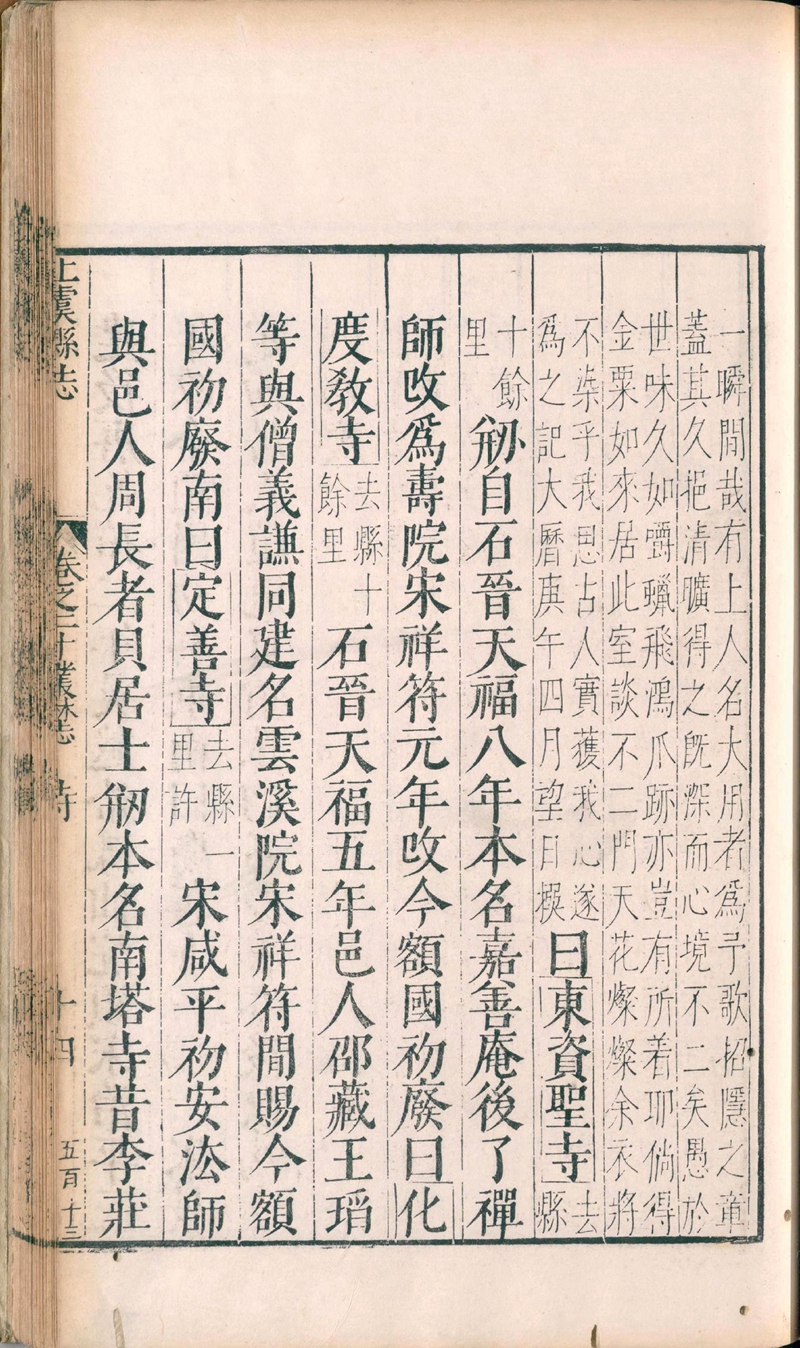 一瞬間哉有上人名大用者爲予歌招隱之章
蓋其久挹清曠得之旣深而心境不二矣愚於
世味久如嚼蠟飛鴻爪跡亦豈有所着耶倘得
金粟如來居此室談不二門天花燦燦余衣將
不染乎我思古人實獲我心遂
爲之記大曆庚午四月望日撰
曰東資聖寺
去
縣
十餘
里
剏自石晉天福八年本名嘉善庵後了禪
師改爲壽院宋祥符元年改今額國初廢曰化
度教寺
去縣十
餘里
石晉天福五年邑人邵藏王瑫
等與僧義謙同建名雲溪院宋祥符間賜今額
國初廢南曰定善寺
去縣一
里許
宋咸平初安法師
與邑人周長者貝居士剏本名南塔寺昔李莊
上虞縣志
卷之二十叢林志
寺
十四
五百十三